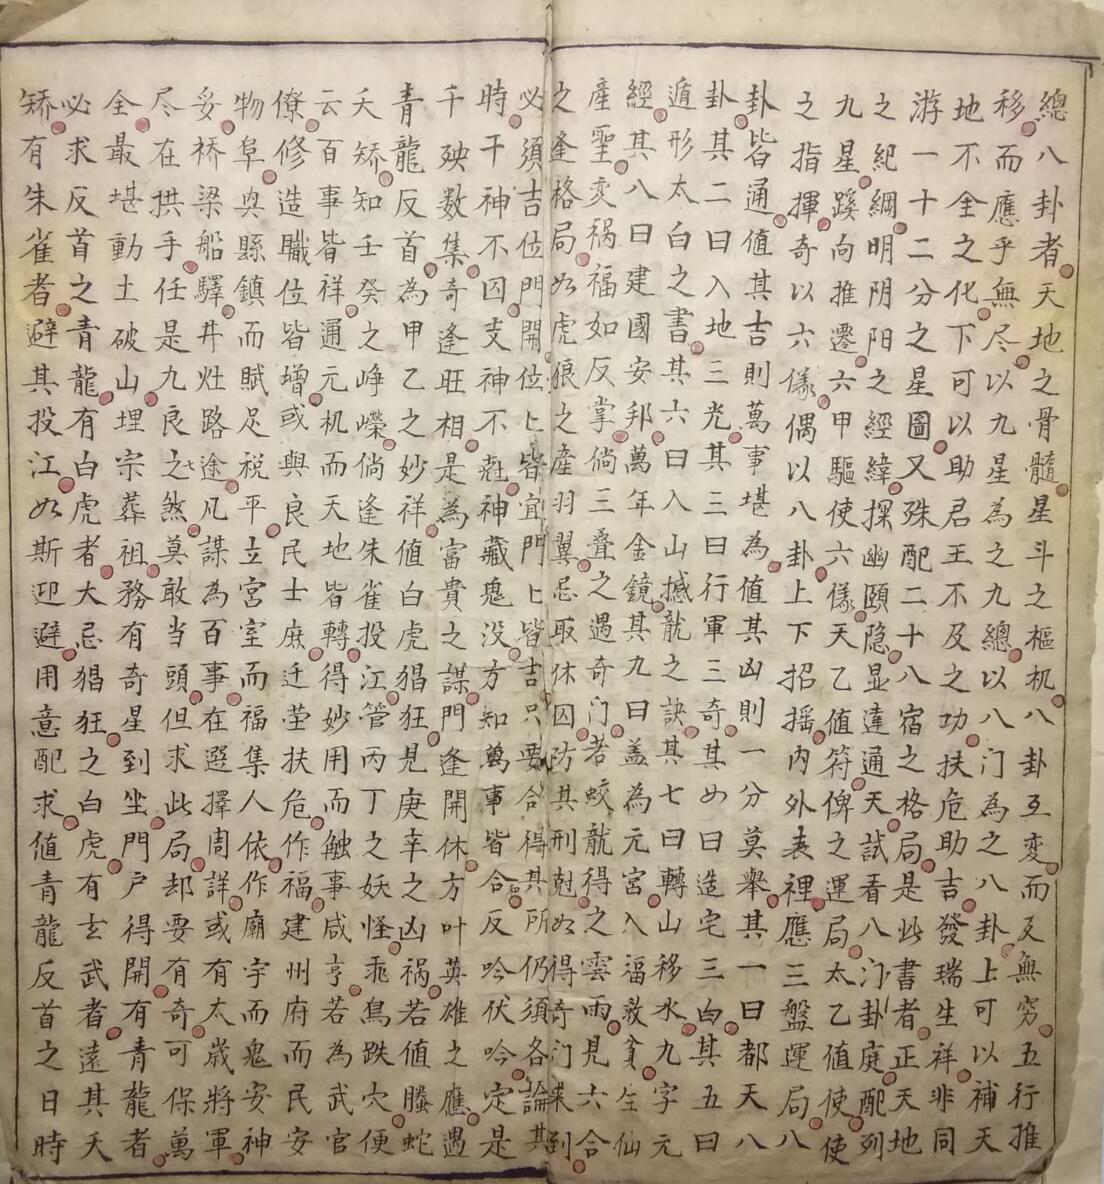 總八卦者天地之骨髓星斗之樞机八卦互變而反無穷五行推
移而應乎無尽以九星為之九總以八门為之八卦上可以補天
地不全之化下可以助君王不及之功扶危助吉發瑞生祥非同
游一十二分之星圖又殊配二十八宿之格局是此書者正天地
之紀綱明阴阳之經緯探幽頣隐显達通天試看八门卦庭配列
九星蹊向推遷六甲驅使六儀天乙值符俾之運局太乙值使使
之指揮奇以六儀偶以八卦上下招摇内外表裡應三盤運局八
卦皆通值其吉則萬事堪為值其凶則一分莫舉其一曰都天八
卦其二曰入地三光其三曰行軍三奇其四曰造宅三白其五曰
遁形太白之書其六曰入山撼龍之訣其七曰轉山移水九字元
經其八曰建國安邦萬年金鏡其九曰盖為元宮入福救貧生仙
產聖变祸福如反掌倘三叠之遇奇门若蛟龍得之雲雨見六合
之逢格局如虎狼之產羽翼忌取休囚防其刑尅如得奇门来到
必須吉位門開位匕皆宜門匕皆吉只要合得其所仍須各論其
時干神不囚支神不尅神藏鬼没方知萬事皆合反吟伏吟定是
千殃数集奇逢旺相是為富貴之謀門逢開休方叶英雄之應遇
青龍反首為甲乙之妙祥值白虎猖狂見庚辛之凶祸若值螣蛇
夭矫知壬癸之峥嶸倘逢朱雀投江管丙丁之妖怪乖鳥跌穴便
云百事皆祥通元机而天地皆轉得妙用而触事咸亨若為武官
僚修造職位皆增或與良民士庶迁茔扶危作福建州府而民安
物阜奐縣鎮而賦足税平立宮室而福集人依作廟宇而鬼安神
妥桥梁船驛井灶路途凡謀為百事在選擇周詳或有太歲將軍
尽在拱手任是九良之煞莫敢当頭但求此局却要有奇可保萬
全最堪動土破山埋宗葬祖務有奇星到坐門户得開有青龍者
必求反首之青龍有白虎者大忌猖狂之白虎有玄武者遠其夭
矫有朱雀者避其投江如斯迎避用意配求值青龍反首之日時